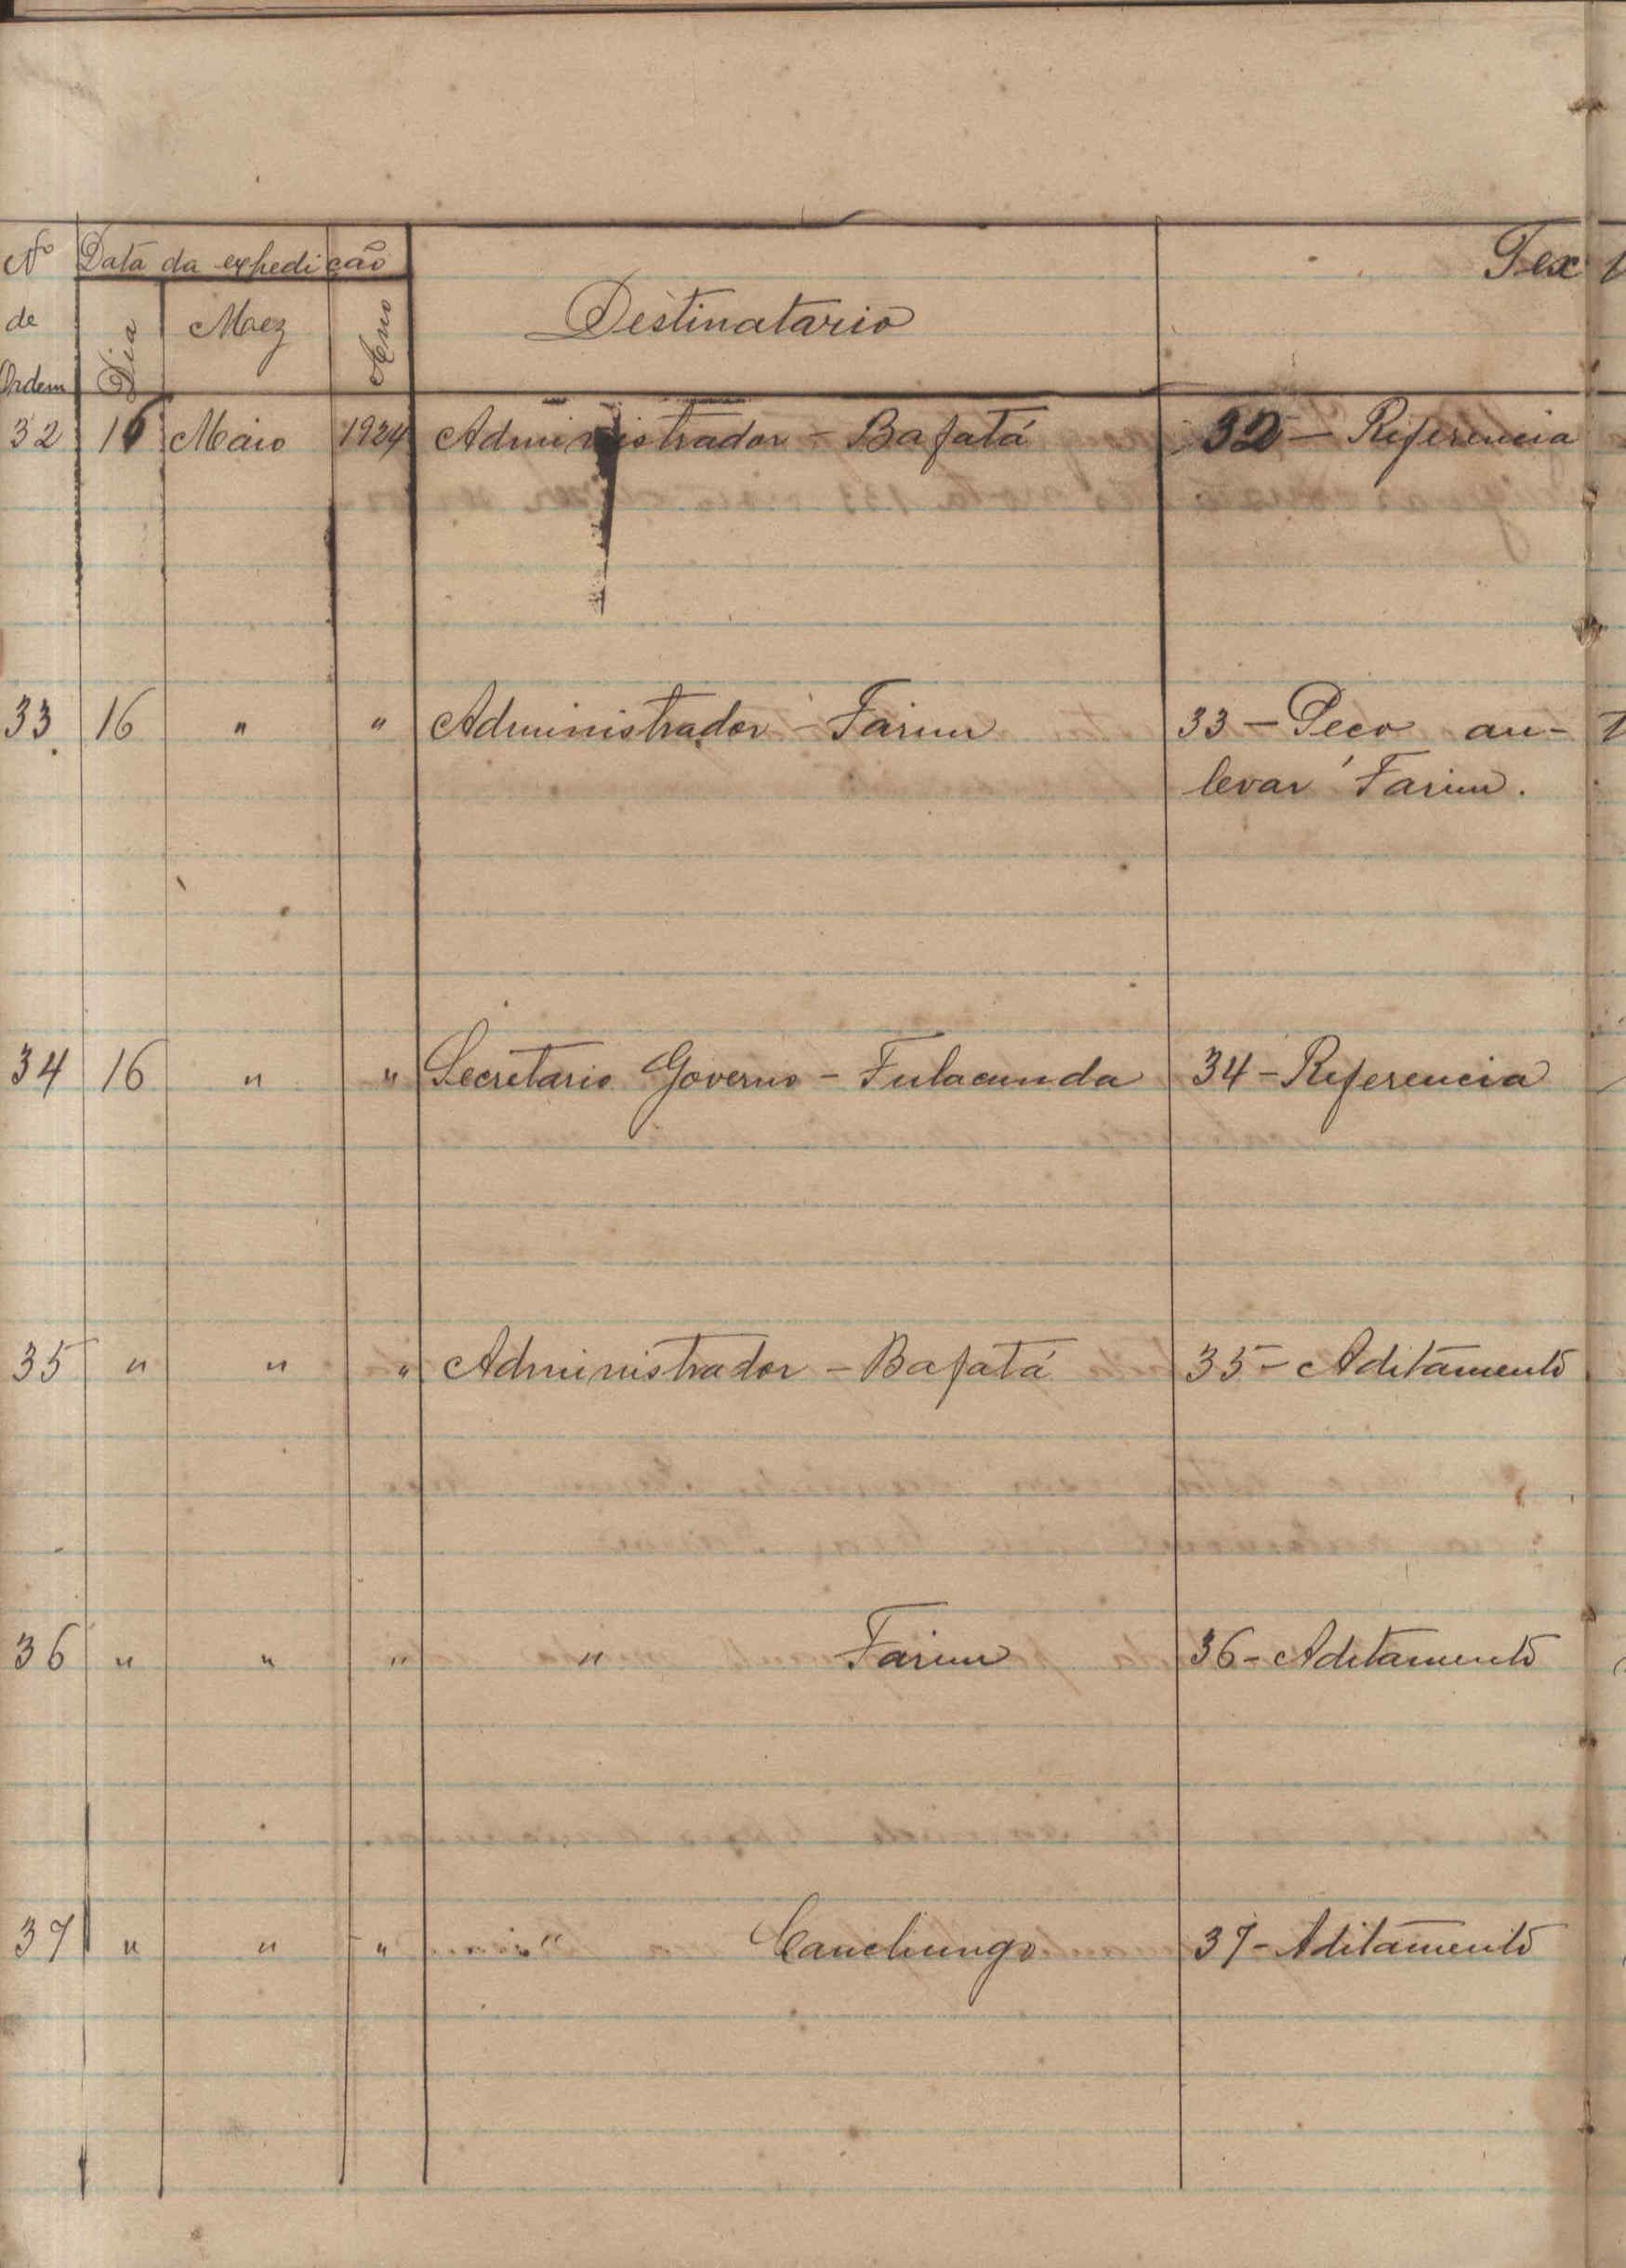 Nº Data da expedição Tex
de Dia Mez Ano Destinatario
Ordem
32 16 Maio 1924 Administrador - Bafatá 32 - Referencia
33 16 " " Administrador - Farim 33 - Peco au-
levar Farim.
34 16 " " Secretario Governo - Fulacunda 34 - Referencia
35 " " " Administrador - Bafatá 35 - Aditamento
36 " " " " Farim 36 - Aditamento
37 " " " " Canchungo 37 - Aditamento